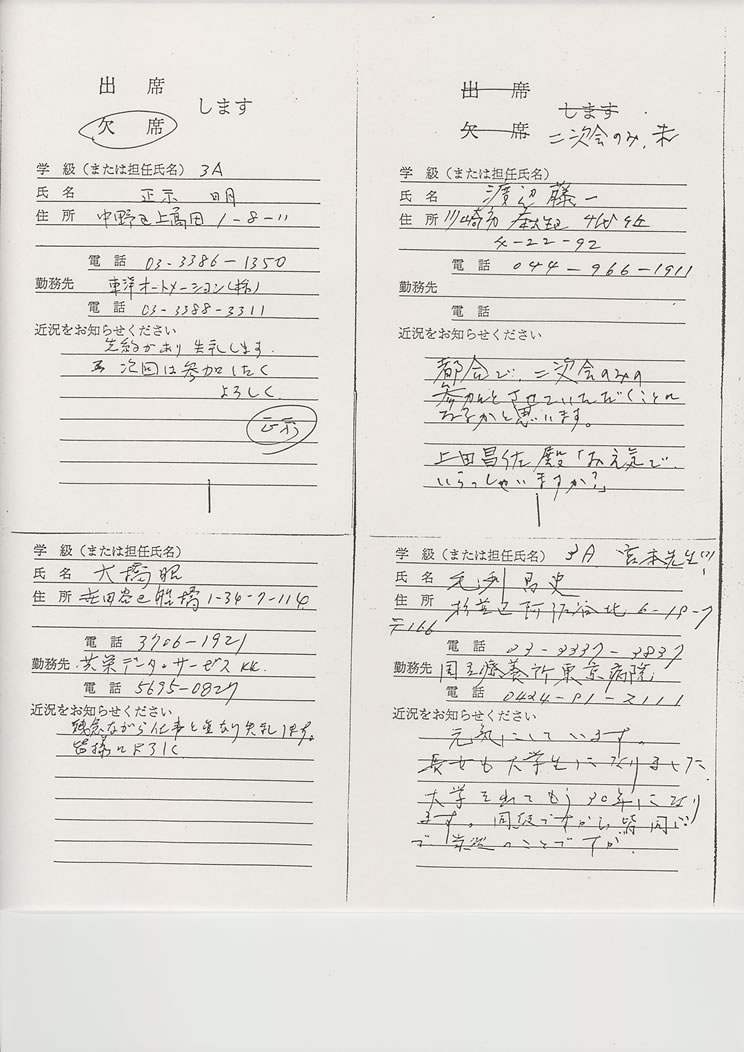 出　席
します
欠　席
学　級（または担任氏名） 3A
氏　名 正示 明
住　所 中野区上高田1-8-11
電　話 03-3386-1350
勤務先 東洋オートメーション(株)
電　話 03-3388-3311
近況をお知らせください
先約があり失礼します.
次回は参加したく
よろしく.
正示
出　席
します
欠　席 二次会のみ,
学　級（または担任氏名）
氏　名 渡辺 藤一
住　所 川崎市
4-22-92
電　話 044-966-1911
勤務先
電　話
近況をお知らせください
都会で、二次会のみの
参加とさせていただくことに
なるかと思います。
上田昌佐殿「お元気で
いらっしゃいますか?」
学　級（または担任氏名）
氏　名 大橋 昭
住　所 世田谷区船橋1-34-7-114
電　話 3706-1921
勤務先 共栄データ・サービスKK.
電　話 5695-0827
近況をお知らせください
残念ながら仕事と重なり失礼します。
皆様によろしく.
学　級（または担任氏名） 3A 宮本先生
氏　名
住　所 杉並区阿佐谷北6-19-7
〒166
電　話 03-3337-3837
勤務先 国立療養所東京病院
電　話 0424-91-2111
近況をお知らせください
元気にしています。
長女も大学生になりました.
大学を出てもう30年になり
ます。同級ですから皆同じ
で当然のことですが.